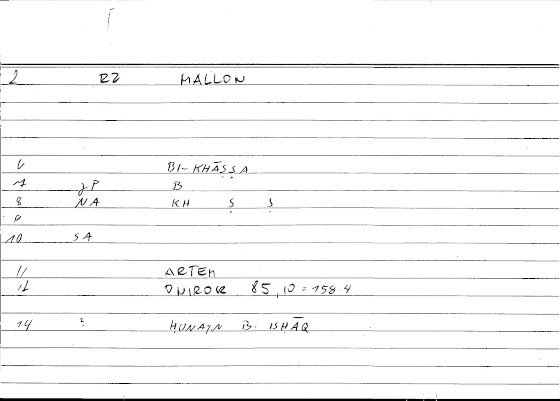 2 RZ MALLON
6 BI-KHĀṢṢA
7 JP B
8 NA KH Ṣ Ṣ
9
10 SA
11 ARTEM
12 ONIROK 85,10 = 158.4
14 ? ḤUNAYN B. ISḤĀQ